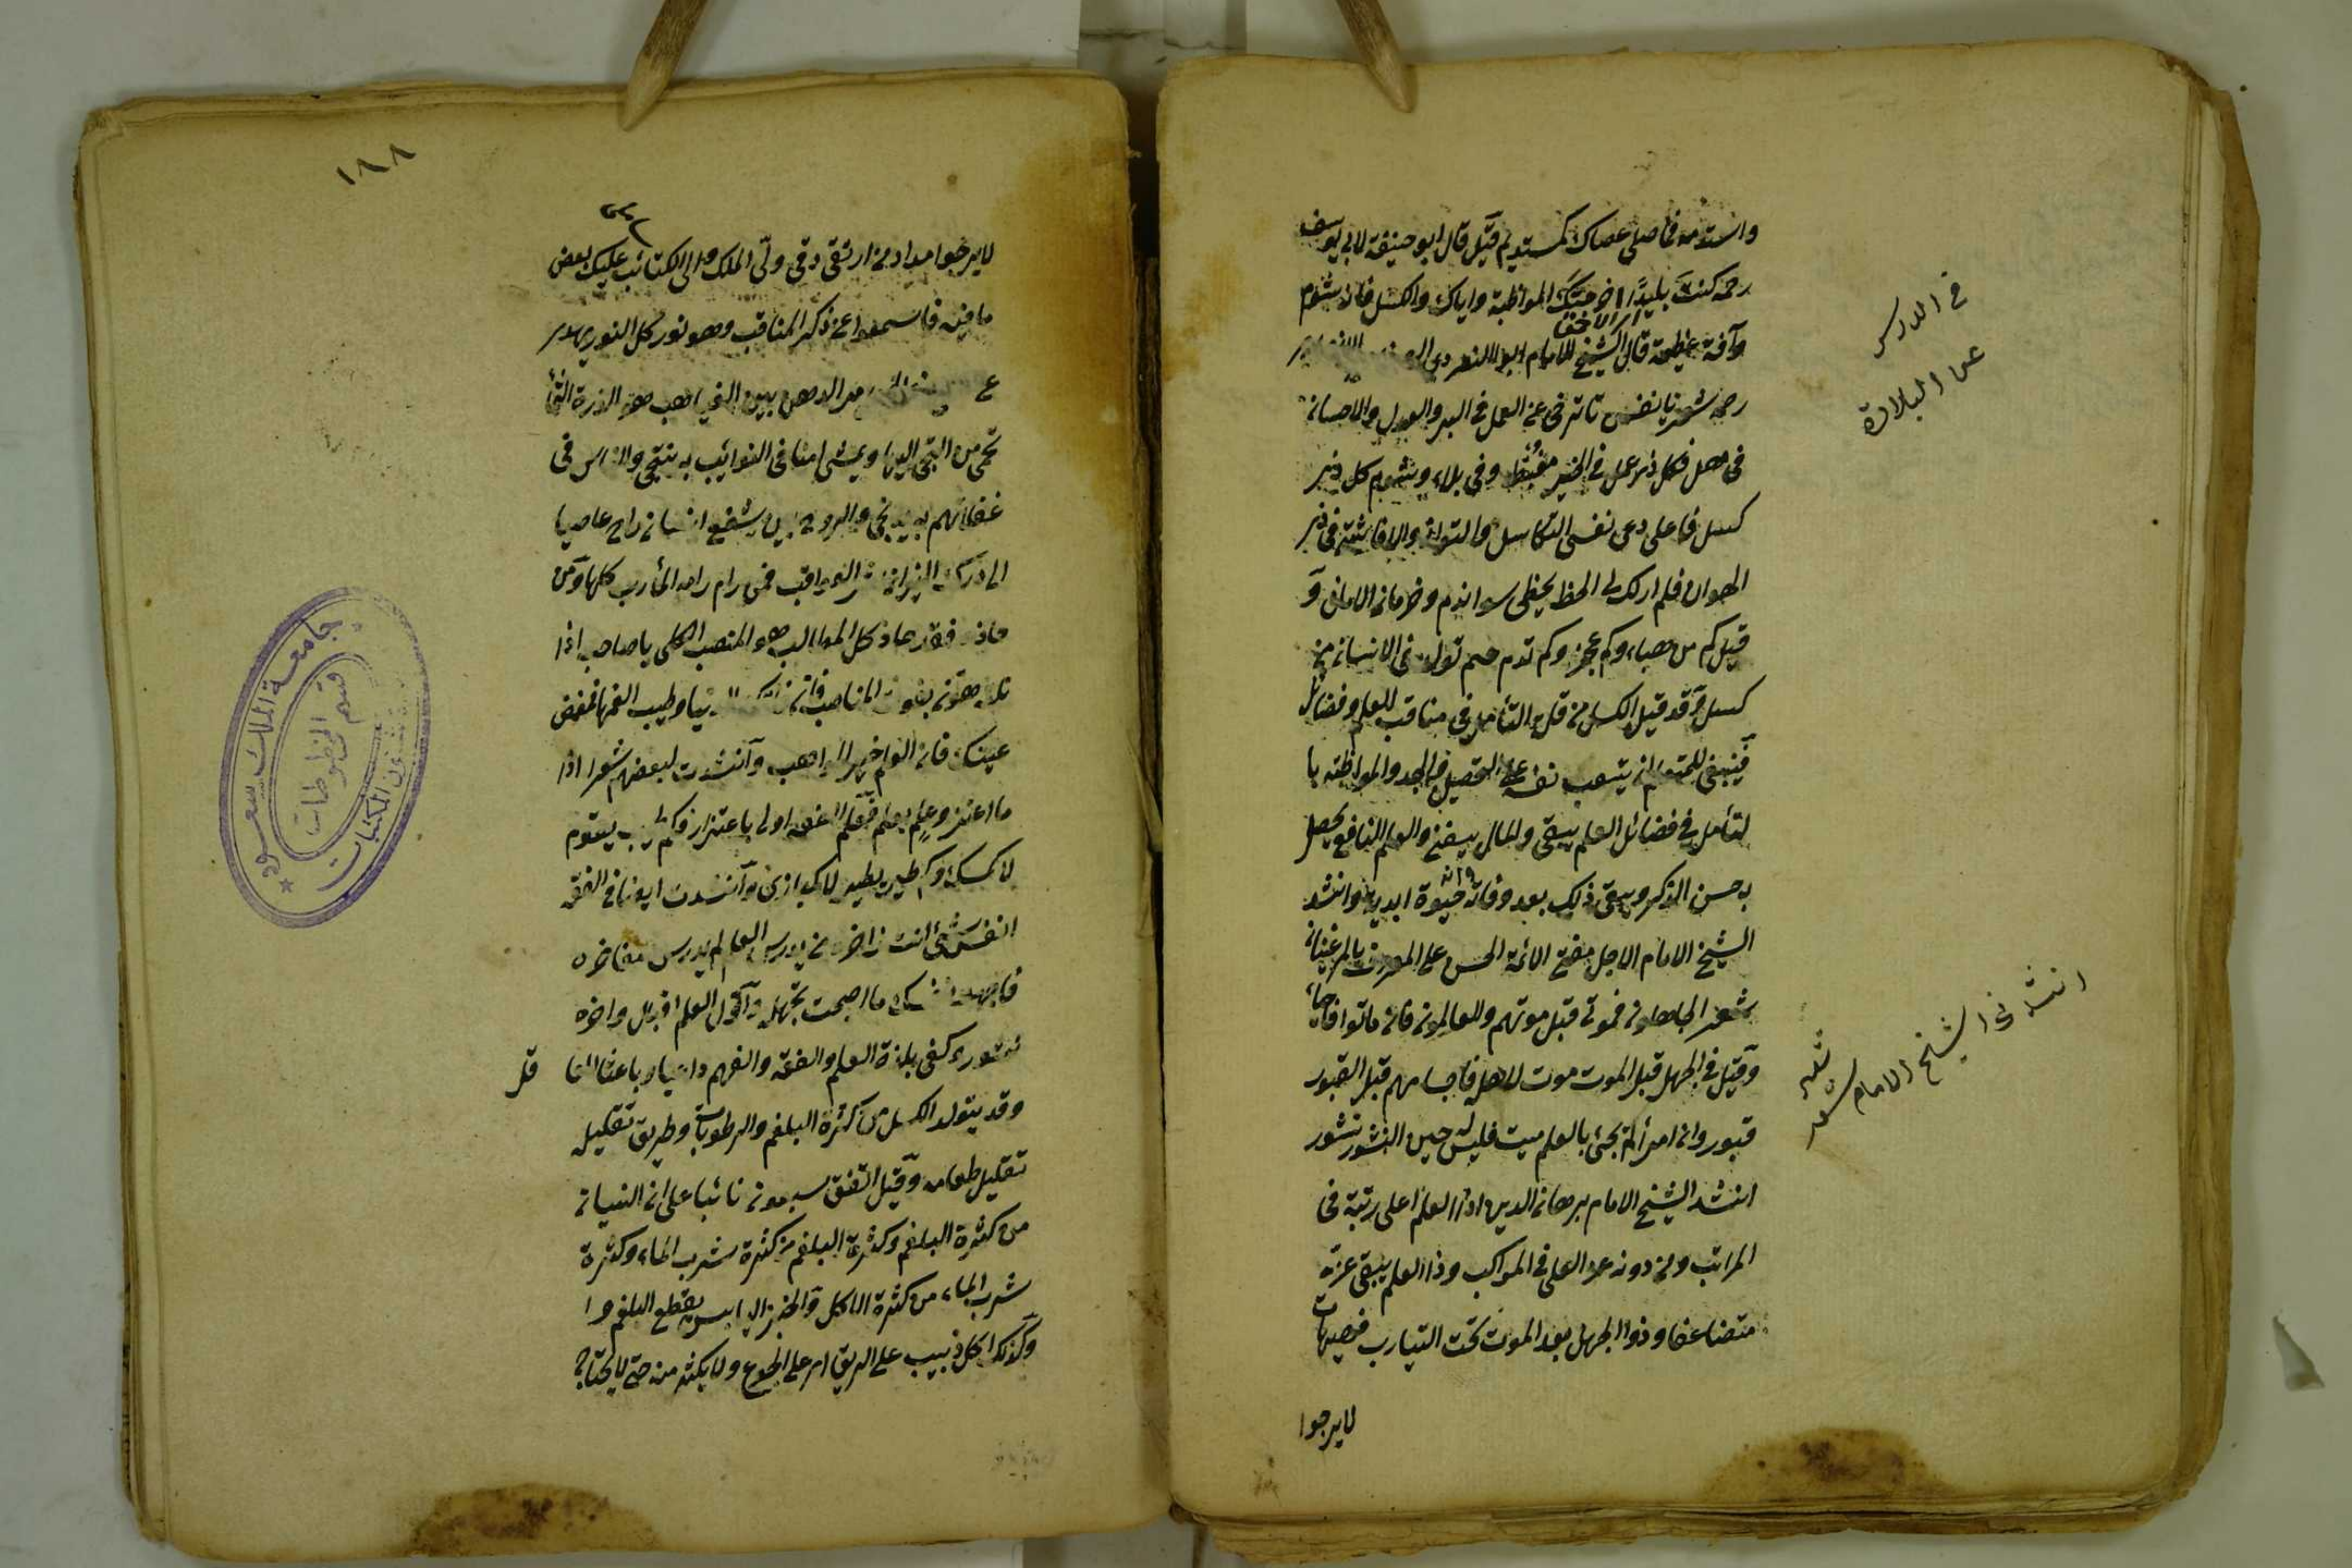 واستدمه فما صلى عصاك كمستديم قيل قال ابو حنيفة لابي يوسف
رحمه كنت بليدا اخرجتك المواظبة واياك والكسل فانه شوم
وآفة عظيمة قال الشيخ الامام ابو النصر
رحمه شعر يا نفس يا نفس لا ترخى عن العمل في البر والعدل والاحسان
في مهل فكل ذي عمل في الخير مغتبط وفي بلاء وشوم كل ذي
كسل فا على دعى نفسى التكاسل والتوانى والا فاثبتى في ذى
الهوان فلم ار للكسالى الحظ يحظى سوا ندم وحرمان الامانى و
قيل كم من حياء وكم عجز وكم ندم جم تولد في الانسان من
كسل وقد قيل الكسل من قلة التأمل في مناقب العلم وفضائل
فينبغى للمتعلم ان يتعب نفسه على التحصيل والجد والمواظبة با
لتأمل في فضائل العلم يبقى والمال يفنى والعلم النافع يحصل
به حسن الذكر ويبقى ذلك بعد وفاته فانه حيوة ابدية وانشد
الشيخ الامام الاجل مفتى الائمة الحسن على المعروف بالمرغينانى
شعر الجاهلون فموتى قبل موتهم والعالمون فان ماتوا فاحياء
وقيل في الجهل قبل الموت موت لاهله فاجسامهم قبل القبور
قبور وان امرأ لم يحيى بالعلم ميت فليس له حين النشور نشور
انشد الشيخ الامام برهان الدين اذ العلم اعلى رتبة في
المراتب ومن دونه عز العلى في المواكب وذا العلم يبقى عزه
متضاعفا وذوا الجهل بعد الموت تحت التيارب فهيهات
لا يرجوا
في الدرس
عن البلادة
انشدنى الشيخ الامام
١٨٨
لا يرجوا مداه من ارتقى رقى ولى الملك والى الكتائب عليك بعض
ما فيه فاسمعوا عن ذكر المناقب وهو نور كل النور يهدى
الدهر بين الغياهب هو الذروة الشماء
تحمى من التجى اليها ويمشى امنا في النوائب به ينتجى والناس في
غفلاتهم به يرتجى والروح بين يشفع انسان راح عاصيا
الى درك النيران شر العواقب فمن رام رامه المأرب كلها ومن
حاز فقد حاز كل المطالب هو المنصب الكلى يا صاحب اذا
نلته هون بفوت المناصب فان الدنيا وطيب نعيمها فغمض
عينك فان العلم خير المواهب وانشدت لبعضهم شعر اذا
ما اعتز ذو علم بعلم فعلم الفقه اولى باعتزاز فكم طيب يقوم
لا كمسك وكم طير يطير لا كبازى وانشدت ايضا في الفقه
انفس شئ انت ذاخره من يدرس العلم لم يدرس مفاخره
فاجهد لنفسك ما اصبحت تجهله واول العلم اقبال واخره
كفى بلذة العلم والفقه والفهم داعيا وباعثا
وقد يتولد الكسل من كثرة البلغم والرطوبات وطريق تقليله
تقليل طعامه وقيل اتفق سبعون نائبا على ان النسيان
من كثرة البلغم وكثرة البلغم من كثرة شرب الماء وكثرة
شرب الماء من كثرة الاكل والخبز اليابس يقطع البلغم وا
وكذلك اكل زبيب على الريق اى على الجوع ولا يكثر منه حتى لا يحتاج
جامعة الملك سعود
شئون المكتبات
قسم المخطوطات